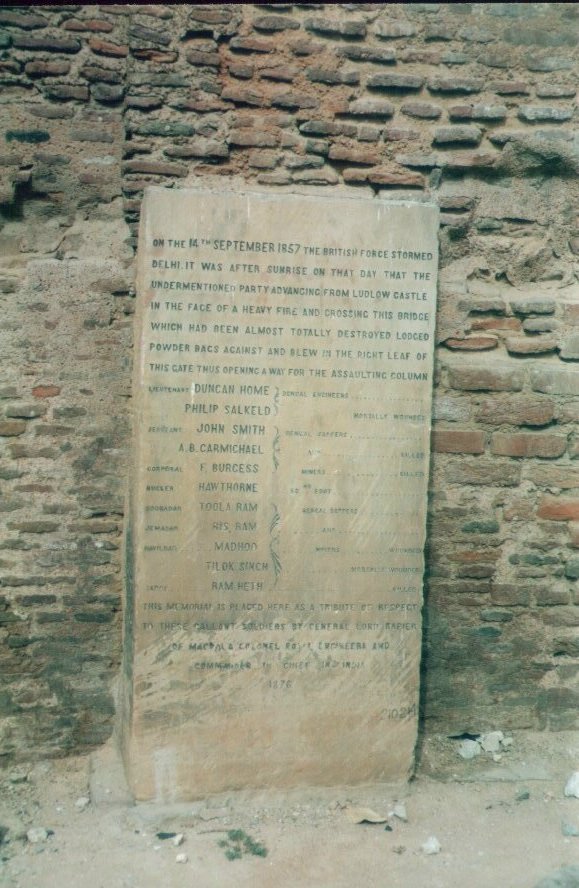 ON THE 14TH SEPTEMBER 1857 THE BRITISH FORCE STORMED
DELHI. IT WAS AFTER SUNRISE ON THAT DAY THAT THE
UNDERMENTIONED PARTY ADVANCING FROM LUDLOW CASTLE
IN THE FACE OF A HEAVY FIRE AND CROSSING THIS BRIDGE
WHICH HAD BEEN ALMOST TOTALLY DESTROYED LODGED
POWDER BAGS AGAINST AND BLEW IN THE RIGHT LEAF OF
THIS GATE THUS OPENING A WAY FOR THE ASSAULTING COLUMN
LIEUTENANT DUNCAN HOME BENGAL ENGINEERS
PHILIP SALKELD MORTALLY WOUNDED
SERGEANT JOHN SMITH BENGAL SAPPERS
A.B. CARMICHAEL KILLED
CORPORAL F. BURGESS MINERS KILLED
BUGLER HAWTHORNE FOOT
SOOBADAR TOOLA RAM BENGAL SAPPERS
JEMADAR RAM AND
HAVILDAR MADHOO MINERS WOUNDED
TILOK SINGH MORTALLY WOUNDED
SEPOY RAM HETH KILLED
THIS MEMORIAL IS PLACED HERE AS A TRIBUTE OF RESPECT
TO THESE GALLANT SOLDIERS BY GENERAL LORD NAPIER
OF MAGDALA COLONEL ROYAL ENGINEERS AND
COMMANDER IN CHIEF IN INDIA
1876